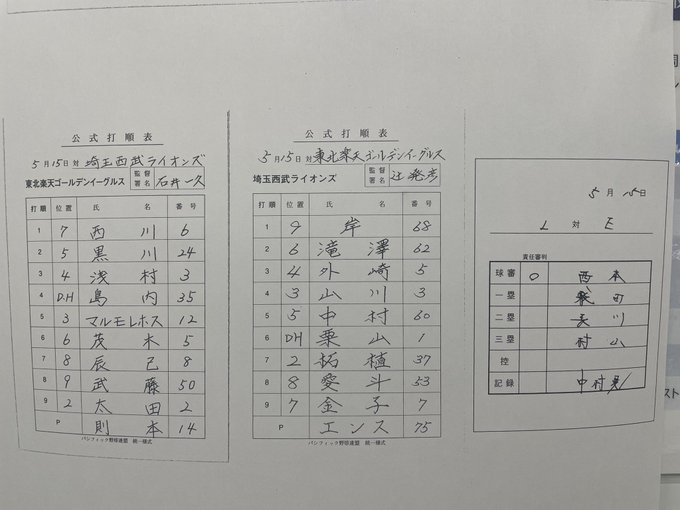 公式打順表
5月15日対 埼玉西武ライオンズ
東北楽天ゴールデンイーグルス 監督署名 石井一久
打順 位置 氏名 番号
1 7 西川 6
2 5 黒川 24
3 4 浅村 3
4 DH 島内 35
5 3 マルモレホス 12
6 6 茂木 5
7 8 辰己 8
8 9 武藤 50
9 2 太田 2
P 則本 14
パシフィック野球連盟 統一様式
公式打順表
5月15日対 東北楽天ゴールデンイーグルス
埼玉西武ライオンズ 監督署名 辻発彦
打順 位置 氏名 番号
1 9 岸 68
2 6 滝澤 62
3 4 外崎 5
4 3 山川 3
5 5 中村 60
6 DH 栗山 1
7 2 柘植 37
8 8 愛斗 53
9 7 金子 7
P エンス 75
パシフィック野球連盟 統一様式
5月15日
L 対 E
責任審判
球審 ○ 西本
一塁 町
二塁 長川
三塁 村山
控
記録 中村晃
スト